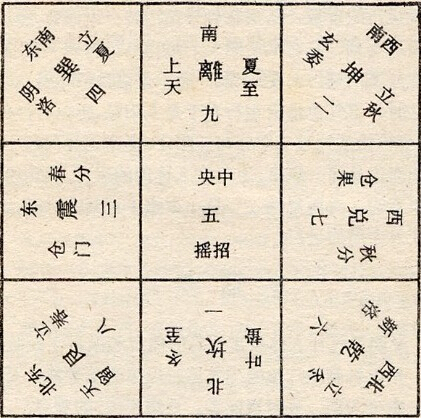 东南
立夏
巽
阴洛
四
南
上天
離
夏至
九
西南
玄委
坤
立秋
二
春分
东
震
三
仓门
中央
五
招摇
仓果
西
兑
七
秋分
立春
八
艮
东北
天留
一
冬至
坎
叶蛰
北
新洛
六
乾
西北
立冬